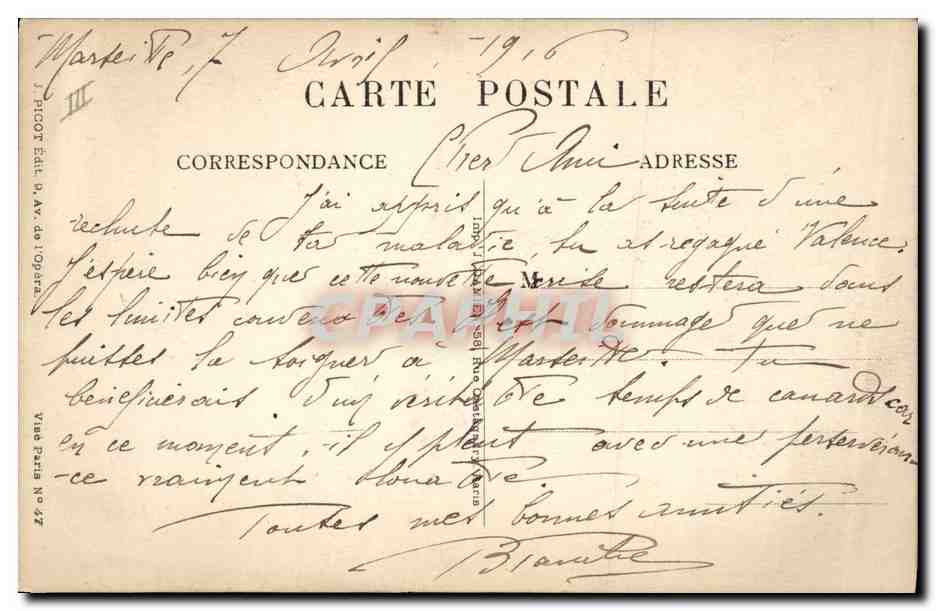 Marseille, 7 Avril 1916
III
CARTE POSTALE
CORRESPONDANCE
ADRESSE
Cher Ami
J'ai appris qu'à la suite d'une
rechute de ta maladie, tu as regagné Valence.
J'espère bien que cette nouvelle crise restera dans
les limites convenables. Il est dommage que ne
puisses la soigner à Marseille. Tu
bénéficierais d'un véritable temps de canards car
en ce moment, il y pleut avec une persévéran-
-ce vraiment
Toutes mes bonnes amitiés.
M
J. PICOT Édit. 9, Av. de l'Opéra.
Visé Paris No 47
Rue Paris
CPAPHIL